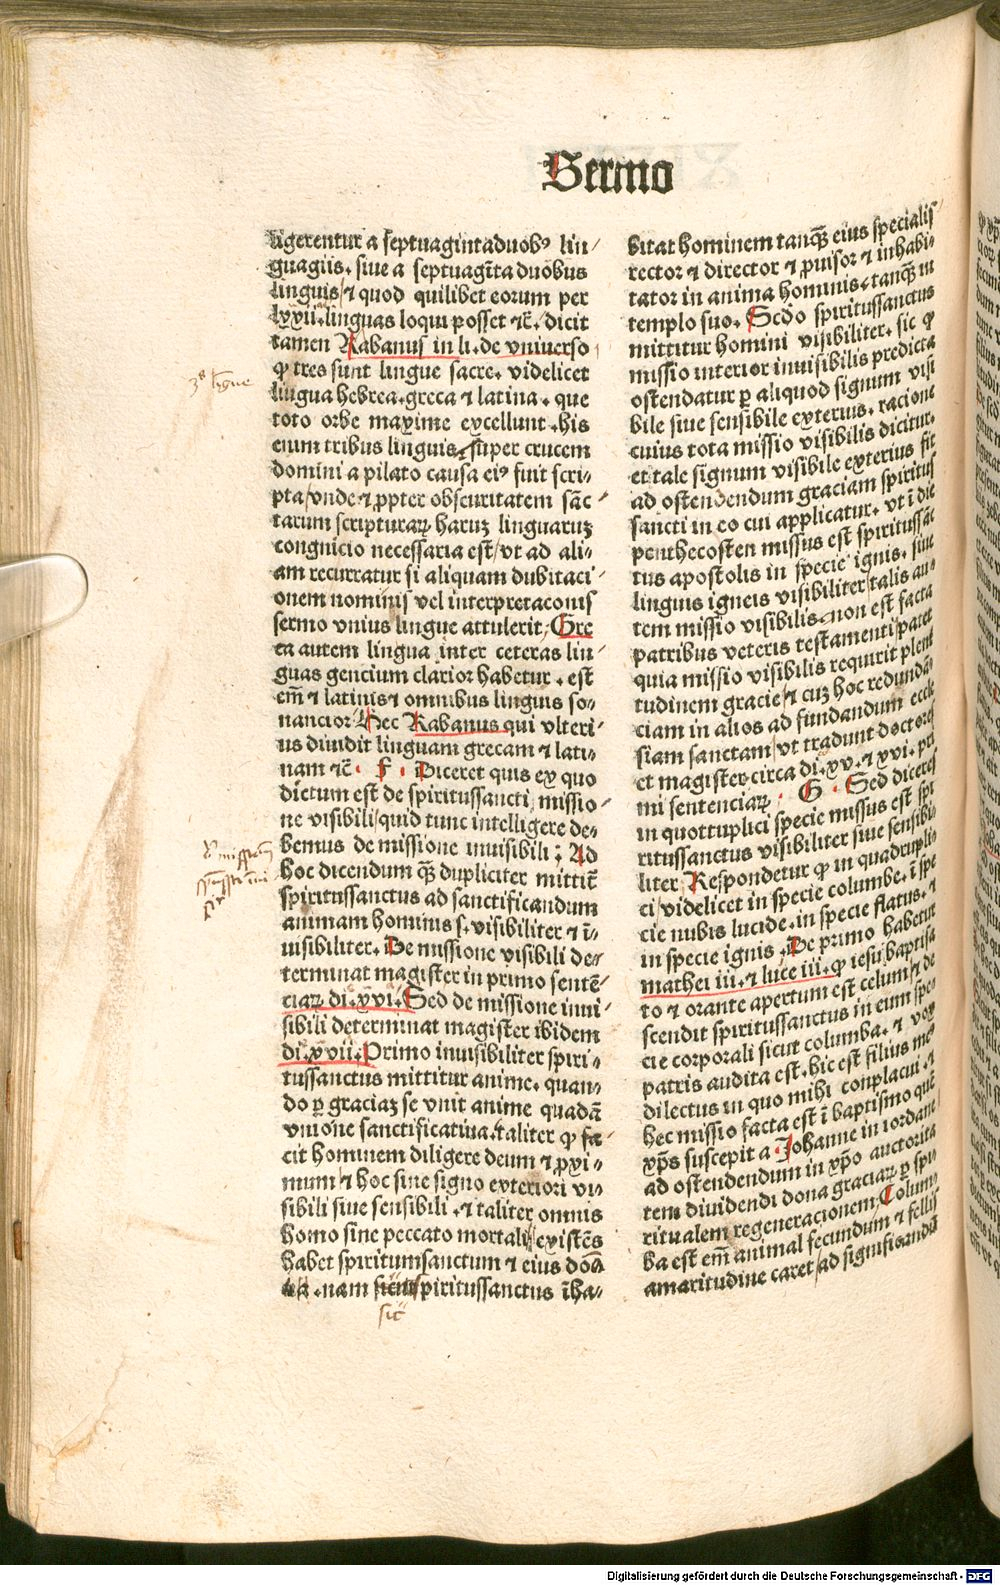 Sermo
ligerentur a septuagintaduobꝰ lin⸗
guagiis. siue a septuagīta duobus
linguis/ ⁊ quod quilibet eorum per
lxxii. linguas loqui posset ⁊c̄. dicit
tamen Rabanus in li. de vniuerso
ꝙ tres sunt lingue sacre. videlicet
lingua hebrea. greca ⁊ latina. que
toto orbe maxime excellunt. his
enim tribus linguis. super crucem
domini a pilato causa eiꝰ fuit scri⸗
pta/ vnde ⁊ ꝓpter obscuritatem sāc⸗
tarum scripturaꝝ haruꝫ linguaruꝫ
congnicio necessaria est/ vt ad ali⸗
am recurratur si aliquam dubitaci⸗
onem nominis vel interpretaconis
sermo vnius lingue attulerit/ Gre
ca autem lingua inter ceteras lin⸗
guas gencium clarior habetur. est
em̄ ⁊ latinis ⁊ omnibus linguis so⸗
nancior Hec Rabanus qui vlteri⸗
us diuidit linguam grecam ⁊ lati⸗
nam ⁊c̄. F. Diceret quis ex quo
dictum est de spiritussancti missio⸗
ne visibili/ quid tunc intelligere de⸗
bemus de missione inuisibili; Ad
hoc dicendum ꝙ̄ dupliciter mittit̄
spiritussanctus ad sanctificandum
animam hominis s. visibiliter ⁊ ī⸗
uisibiliter. De missione visibili de⸗
terminat magister in primo sentē⸗
ciaꝝ di. xvi. Sed de missione inui⸗
sibili determinat magister ibidem
di. xvii. Primo inuisibiliter spiri⸗
tussanctus mittitur anime. quan⸗
do ꝑ graciaꝫ se vnit anime quadā
vnione sanctificatiua. taliter ꝙ fa⸗
cit hominem diligere deum ⁊ ꝓxi⸗
mum ⁊ hoc sine signo exteriori vi⸗
sibili siue sensibili. ⁊ taliter omnis
homo sine peccato mortali/ existēs
habet spiritumsanctum ⁊ eius dōa
nam spiritussanctus īha⸗
sic̄
bitat hominem tanqꝫ̄ eius specialis
rector ⁊ director ⁊ ꝓuisor ⁊ inhabi⸗
tator in anima hominis. tanqꝫ̄ in
templo suo. Scd̄o spiritussanctus
mittitur homini visibiliter. sic ꝙ
missio interior inuisibilis predicta
ostendatur ꝑ aliquod signum visi
bile siue sensibile exterius. racione
cuius tota missio visibilis dicitur.
et tale signum visibile exterius fit
ad ostendendum graciam spiritus
sancti in eo cui applicatur. vt ī die
penthecosten missus est spiritussāc
tus apostolis in specie ignis. siue
linguis igneis visibiliter/ talis au⸗
tem missio visibilis. non est facta
patribus veteris testamenti patet
quia missio visibilis requirit pleni
tudinem gracie/ ⁊ cuꝫ hoc redundā⸗
ciam in alios ad fundandum eccle
siam sanctam/ vt tradunt doctores
et magister circa di. xv. ⁊ xvi. pri
mi sentenciaꝝ. G. Sed diceres
in quottuplici specie missus est spi
ritussanctus visibiliter siue sensibi
liter Respondetur ꝙ in quadrupli⸗
ci/ videlicet in specie columbe. ī spe
cie nubis lucide. in specie flatus. ⁊
in specie ignis. De primo habetur
mathei iii. ⁊ luce iii. ꝙ iesu baptisa
to ⁊ orante apertum est celum/ ⁊ de
scendit spiritussanctus in eum spe⸗
cie corporali sicut columba. ⁊ vox
patris audita est. hic est filius me⸗
dilectus in quo mihi conplacui. ⁊
hec missio facta est ī baptismo quē
xp̄s suscepit a Johanne in iordane
ad ostendendum in xp̄o auctorita
tem diuidendi dona graciaꝝ ꝑ spi⸗
ritualem regeneracionem/ Colum⸗
ba est em̄ animal fecundum ⁊ fellis
amaritudine caret/ ad significandū
Digitalisierung gefördert durch die Deutsche Forschungsgemeinschaft - DFG